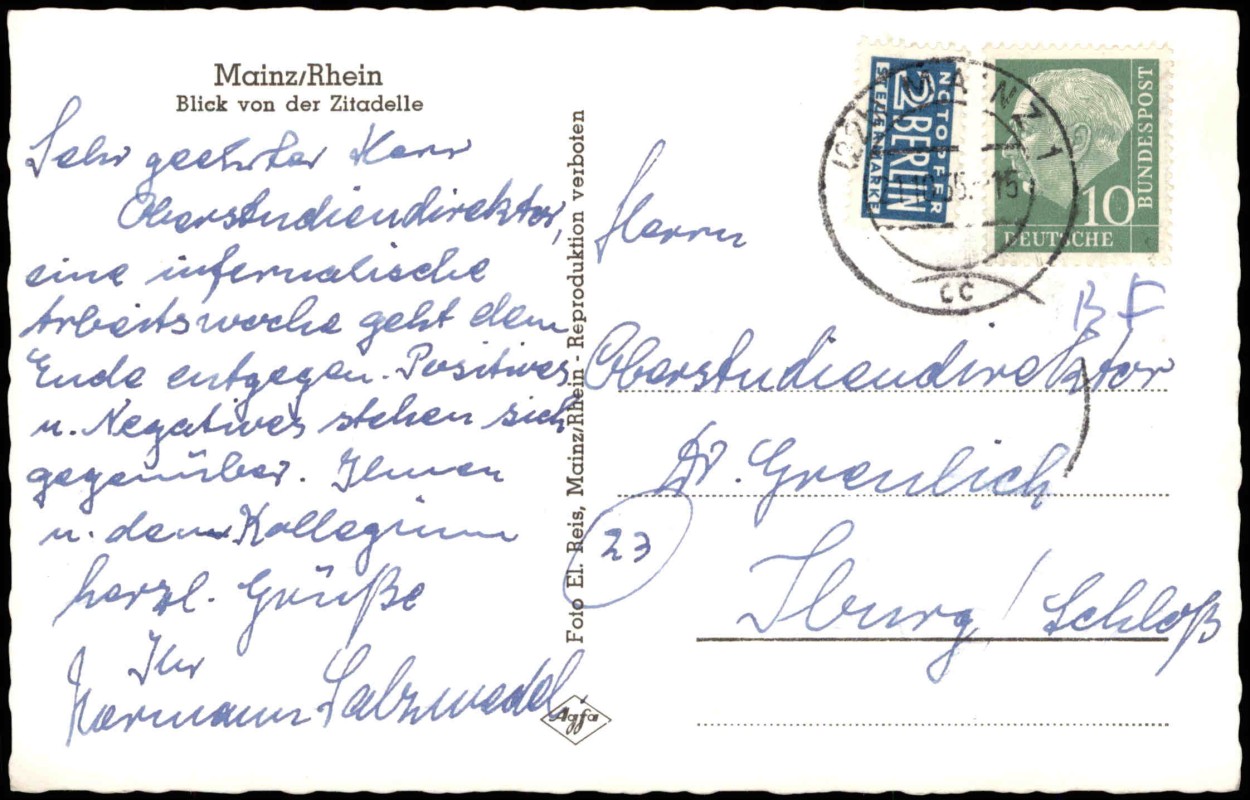 Mainz/Rhein
Blick von der Zitadelle
Sehr geehrter Herr
Oberstudiendirektor,
eine infernalische
Arbeitswoche geht dem
Ende entgegen. Positives
u. Negatives stehen sich
gegenüber. Ihnen
u. dem Kollegium
herzl. Grüße
Ihr
Hermann Salzwedel
Foto El. Reis, Mainz/Rhein - Reproduktion verboten
Agfa
NOTOPFER
2 BERLIN
STEUERMARKE
MAINZ 1
cc
10
DEUTSCHE
BUNDESPOST
BF
Herrn
Oberstudiendirektor
Dr. Greulich
23
Iburg / Schloß